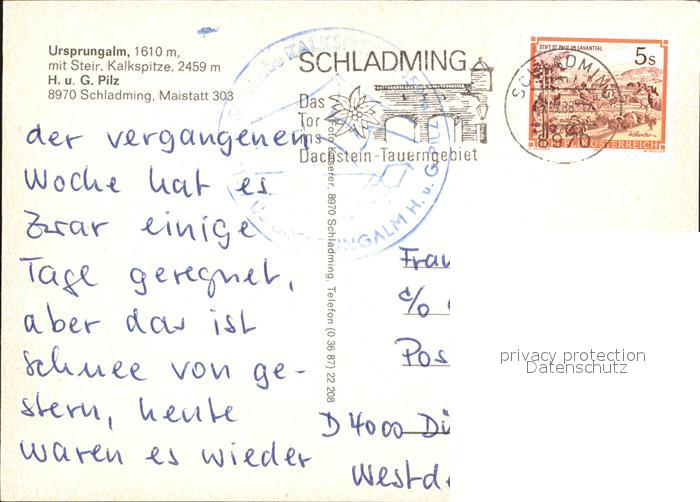 Ursprungalm, 1610 m,
mit Steir. Kalkspitze, 2459 m
H. u. G. Pilz
8970 Schladming, Maistatt 303
SCHLADMING
Das
Tor
ins
Dachstein-Tauerngebiet
STIFT ST. PAUL IM LAVANTTAL
5 S
REPUBLIK ÖSTERREICH
SCHLADMING
8970
URSPRUNGALM H. u. G. PILZ
Foto Kaserer, 8970 Schladming, Telefon (0 36 87) 22 208
der vergangenen
Woche hat es
zwar einige
Tage geregnet,
aber das ist
Schnee von ge-
stern, heute
waren es wieder
Frau
c/o
Pos
D 4000 Dü
Westd
privacy protection
Datenschutz